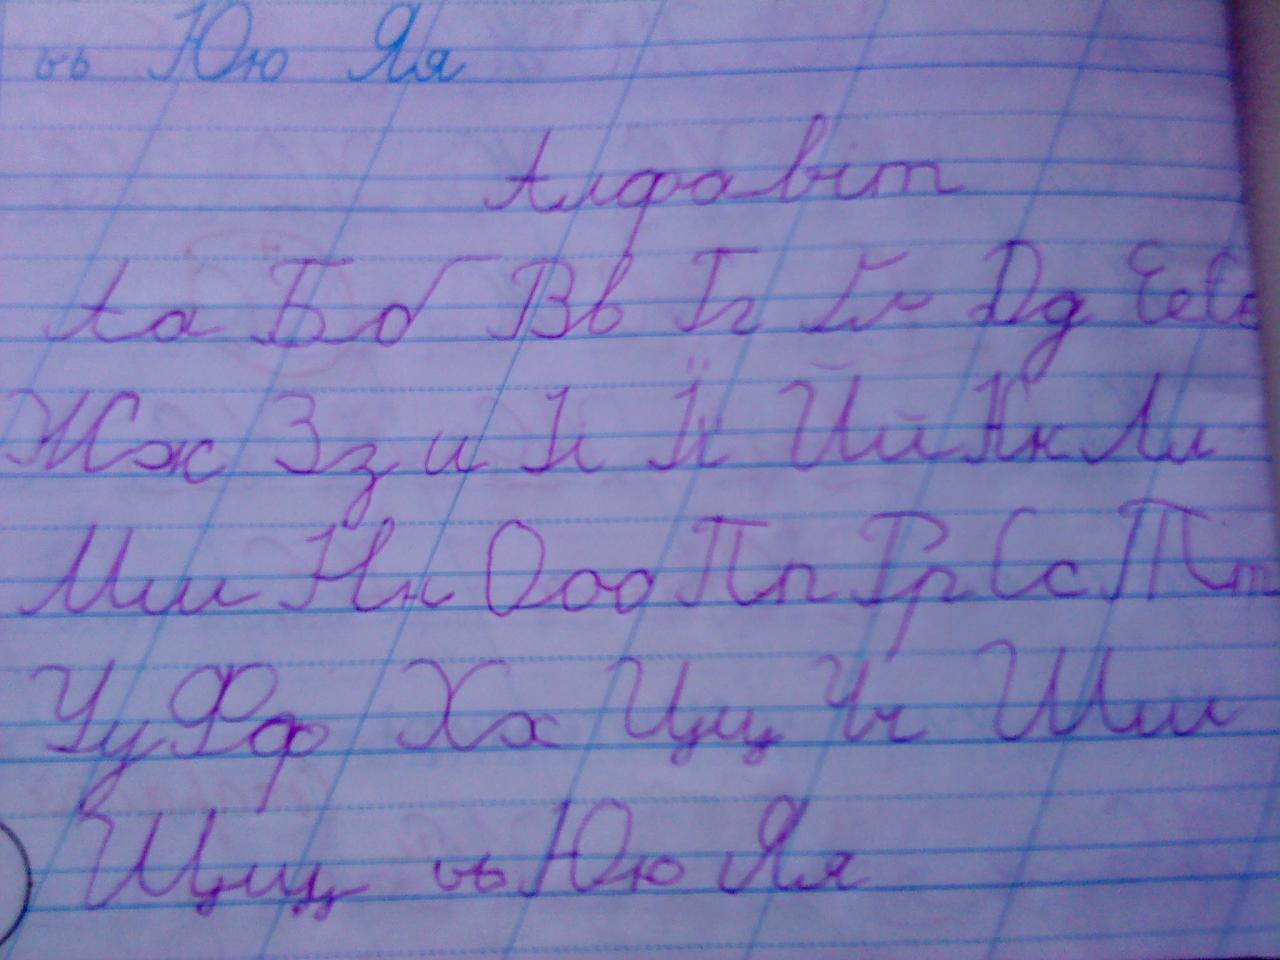 ь Юю Яя
Алфавіт
Аа Бб Вв Гг Ґґ Дд Ее Єє
Жж Зз и Іі Її Йй Кк Лл
Мм Нн Оо о Пп Рр Сс Тт
Уу Фф Хх Цц Чч Шш
Щщ ь Юю Яя